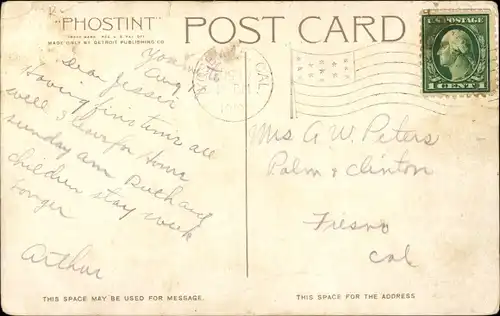 "PHOSTINT"
POST CARD
MADE ONLY BY DETROIT PUBLISHING CO.
CAL
U.S. POSTAGE
1 CENT 1
Aug
Dear Jessie
Having fine time all
well I leave for home
Sunday am
children stay week
longer
Arthur
Mrs A. W. Peters
Palm & Clinton
Fresno
Cal
THIS SPACE MAY BE USED FOR MESSAGE.
THIS SPACE FOR THE ADDRESS